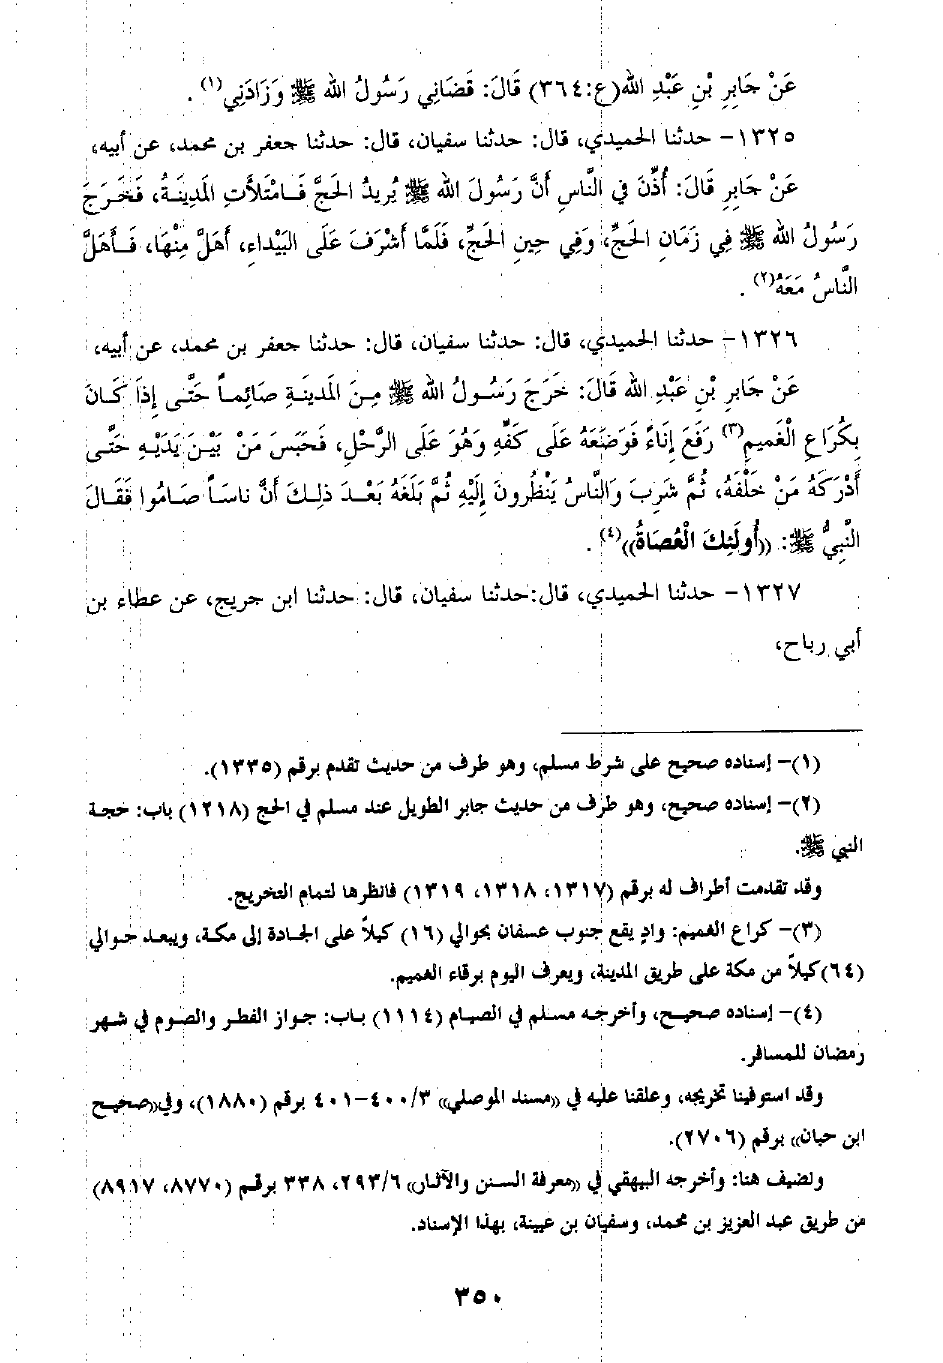 عَنْ جَابِرِ بْنِ عَبْدِ الله(ع:٣٦٤) قَالَ: قَضَانِي رَسُولُ الله ﷺ وَزَادَنِي(١) .
١٣٢٥- حدثنا الحميدي، قال: حدثنا سفيان، قال: حدثنا جعفر بن محمد، عن أبيه،
عَنْ جَابِرٍ قَالَ: أُذِّنَ فِي النَّاسِ أَنَّ رَسُولَ الله ﷺ يُرِيدُ الحَجَّ فَـامْتَلَأَتِ المَدِينَـةُ، فَخَـرَجَ
رَسُولُ الله ﷺ فِي زَمَانِ الحَجِّ، وَفِي حِينِ الحَجِّ، فَلَمَّا أَشْرَفَ عَلَى البَيْدَاءِ، أَهَلَّ مِنْهَا، فَـأَهَلَّ
النَّاسُ مَعَهُ(٢) .
١٣٢٦- حدثنا الحميدي، قال: حدثنا سفيان، قال: حدثنا جعفر بن محمد، عن أبيه،
عَنْ جَابِرِ بْنِ عَبْدِ الله قَالَ: خَرَجَ رَسُـولُ الله ﷺ مِـنَ المَدِينَـةِ صَائِمـاً حَتَّـى إِذَا كَـانَ
بِكُرَاعِ الْغَمِيمِ(٣) رَفَعَ إِنَاءً فَوَضَعَهُ عَلَى كَفِّهِ وَهُوَ عَلَى الرَّحْلِ، فَحَبَسَ مَنْ بَيْـنَ يَدَيْـهِ حَتَّـى
أَدْرَكَهُ مَنْ خَلْفَهُ، ثُمَّ شَرِبَ وَالنَّاسُ يَنْظُرونَ إِلَيْهِ ثُمَّ بَلَغَهُ بَعْـدَ ذلِـكَ أَنَّ ناسـاً صَـامُوا فَقَـالَ
النَّبِيُّ ﷺ: ((أُولَئِكَ الْعُصَاةُ))(٤) .
١٣٢٧- حدثنا الحميدي، قال:حدثنا سفيان، قال: حدثنا ابن جريج، عن عطاء بن
أبي رباح،
(١)- إسناده صحيح على شرط مسلم، وهو طرف من حديث تقدم برقم (١٣٣٥).
(٢)- إسناده صحيح، وهو طرف من حديث جابر الطويل عند مسلم في الحج (١٢١٨) باب: حجة
النبي ﷺ.
وقد تقدمت أطراف له برقم (١٣١٧، ١٣١٨، ١٣١٩) فانظرها لتمام التخريج.
(٣)- كراع الغميم: وادٍ يقع جنوب عسفان بحوالي (١٦) كيلاً على الجادة إلى مكة، ويبعـد حـوالي
(٦٤)كيلاً من مكة على طريق المدينة، ويعرف اليوم برقاء الغميم.
(٤)- إسناده صحيـح، وأخرجـه مسـلم في الصيـام (١١١٤) بـاب: جـواز الفطـر والصـوم في شـهر
رمضان للمسافر.
وقد استوفينا تخريجه، وعلقنا عليه في ((مسند الموصلي)) ٣/ ٤٠٠-٤٠١ برقم (١٨٨٠)، وفي((صحيـح
ابن حبان)) برقم (٢٧٠٦).
ونضيف هنا: وأخرجه البيهقي في ((معرفة السنن والآثار)) ٦/ ٢٩٣، ٣٣٨ برقـم (٨٧٧٠، ٨٩١٧)
من طريق عبد العزيز بن محمد، وسفيان بن عيينة، بهذا الإسناد.
٣٥٠